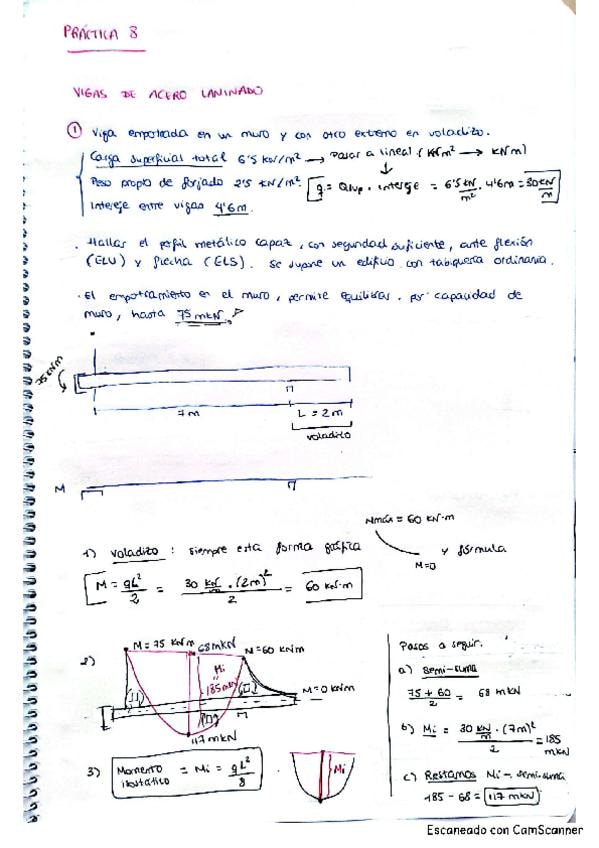 PRÁCTICA 8
VIGAS DE ACERO LAMINADO
① Viga empotrada en un muro y con otro extremo en voladizo.
Carga superficial total 6'5 kN/m² → Pasar a lineal (kN/m² → kN/m)
Peso propio de forjado 2'5 kN/m². q = Qsup · intereje = 6'5 kN/m² · 4'6m = 30 kN/m
Intereje entre vigas 4'6m.
· Hallar el perfil metálico capaz, con seguridad suficiente, ante flexión
(ELU) y flecha (ELS). Se supone un edificio con tabiquería ordinaria.
· El empotramiento en el muro, permite equilibrar, por capacidad de
muro, hasta 75 mkN.
75 kNm
7m
L = 2m
voladizo
M
Mmáx = 60 kN·m
1) Voladizo : siempre esta forma gráfica
y fórmula
M=0
M = qL²/2 = 30 kN/m · (2m)²/2 = 60 kN·m
2)
M = 75 kNm
68 mkN
M = 60 kNm
Mi
=
185 mkN
M = 0 kNm
117 mkN
3) Momento isostático = Mi = qL²/8
Mi
Pasos a seguir.
a) Semi-suma
75 + 60 / 2 = 68 mkN
b) Mi = 30 kN/m · (7m)² / 2 = 185 mkN
c) Restamos Mi - semisuma
185 - 68 = 117 mkN
Escaneado con CamScanner